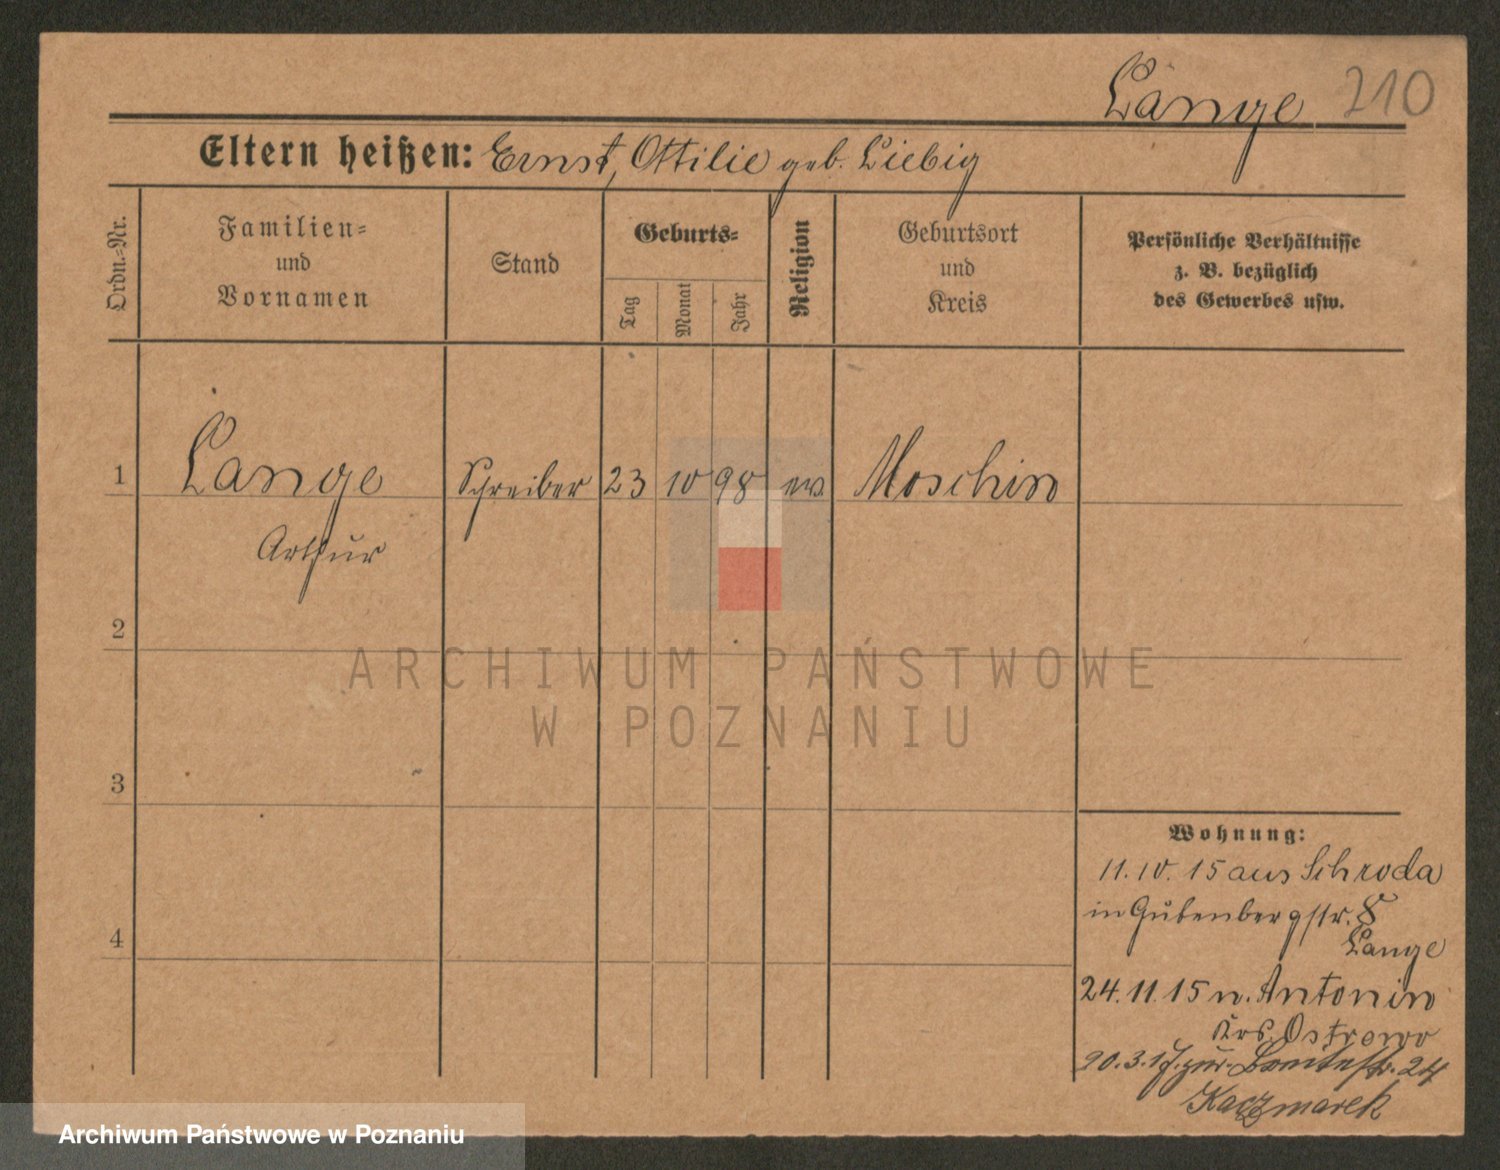 Lange 210
Eltern heißen: Ernst, Ottilie geb. Liebig
Ordn.-Nr.
Familien-
und
Vornamen
Stand
Geburts-
Tag
Monat
Jahr
Religion
Geburtsort
und
Kreis
Persönliche Verhältnisse
z. B. bezüglich
des Gewerbes usw.
1 Lange Schreiber 23 10 98 ev. Moschin
Arthur
2
3
4
Wohnung:
11.10.15 aus Schroda
in Gutenbergstr. 8
Lange
24.11.15 n. Antonin
Krs. Ostrowo
20.3.17. zur. 24
Kaczmarek
ARCHIWUM PAŃSTWOWE
W POZNANIU
Archiwum Państwowe w Poznaniu